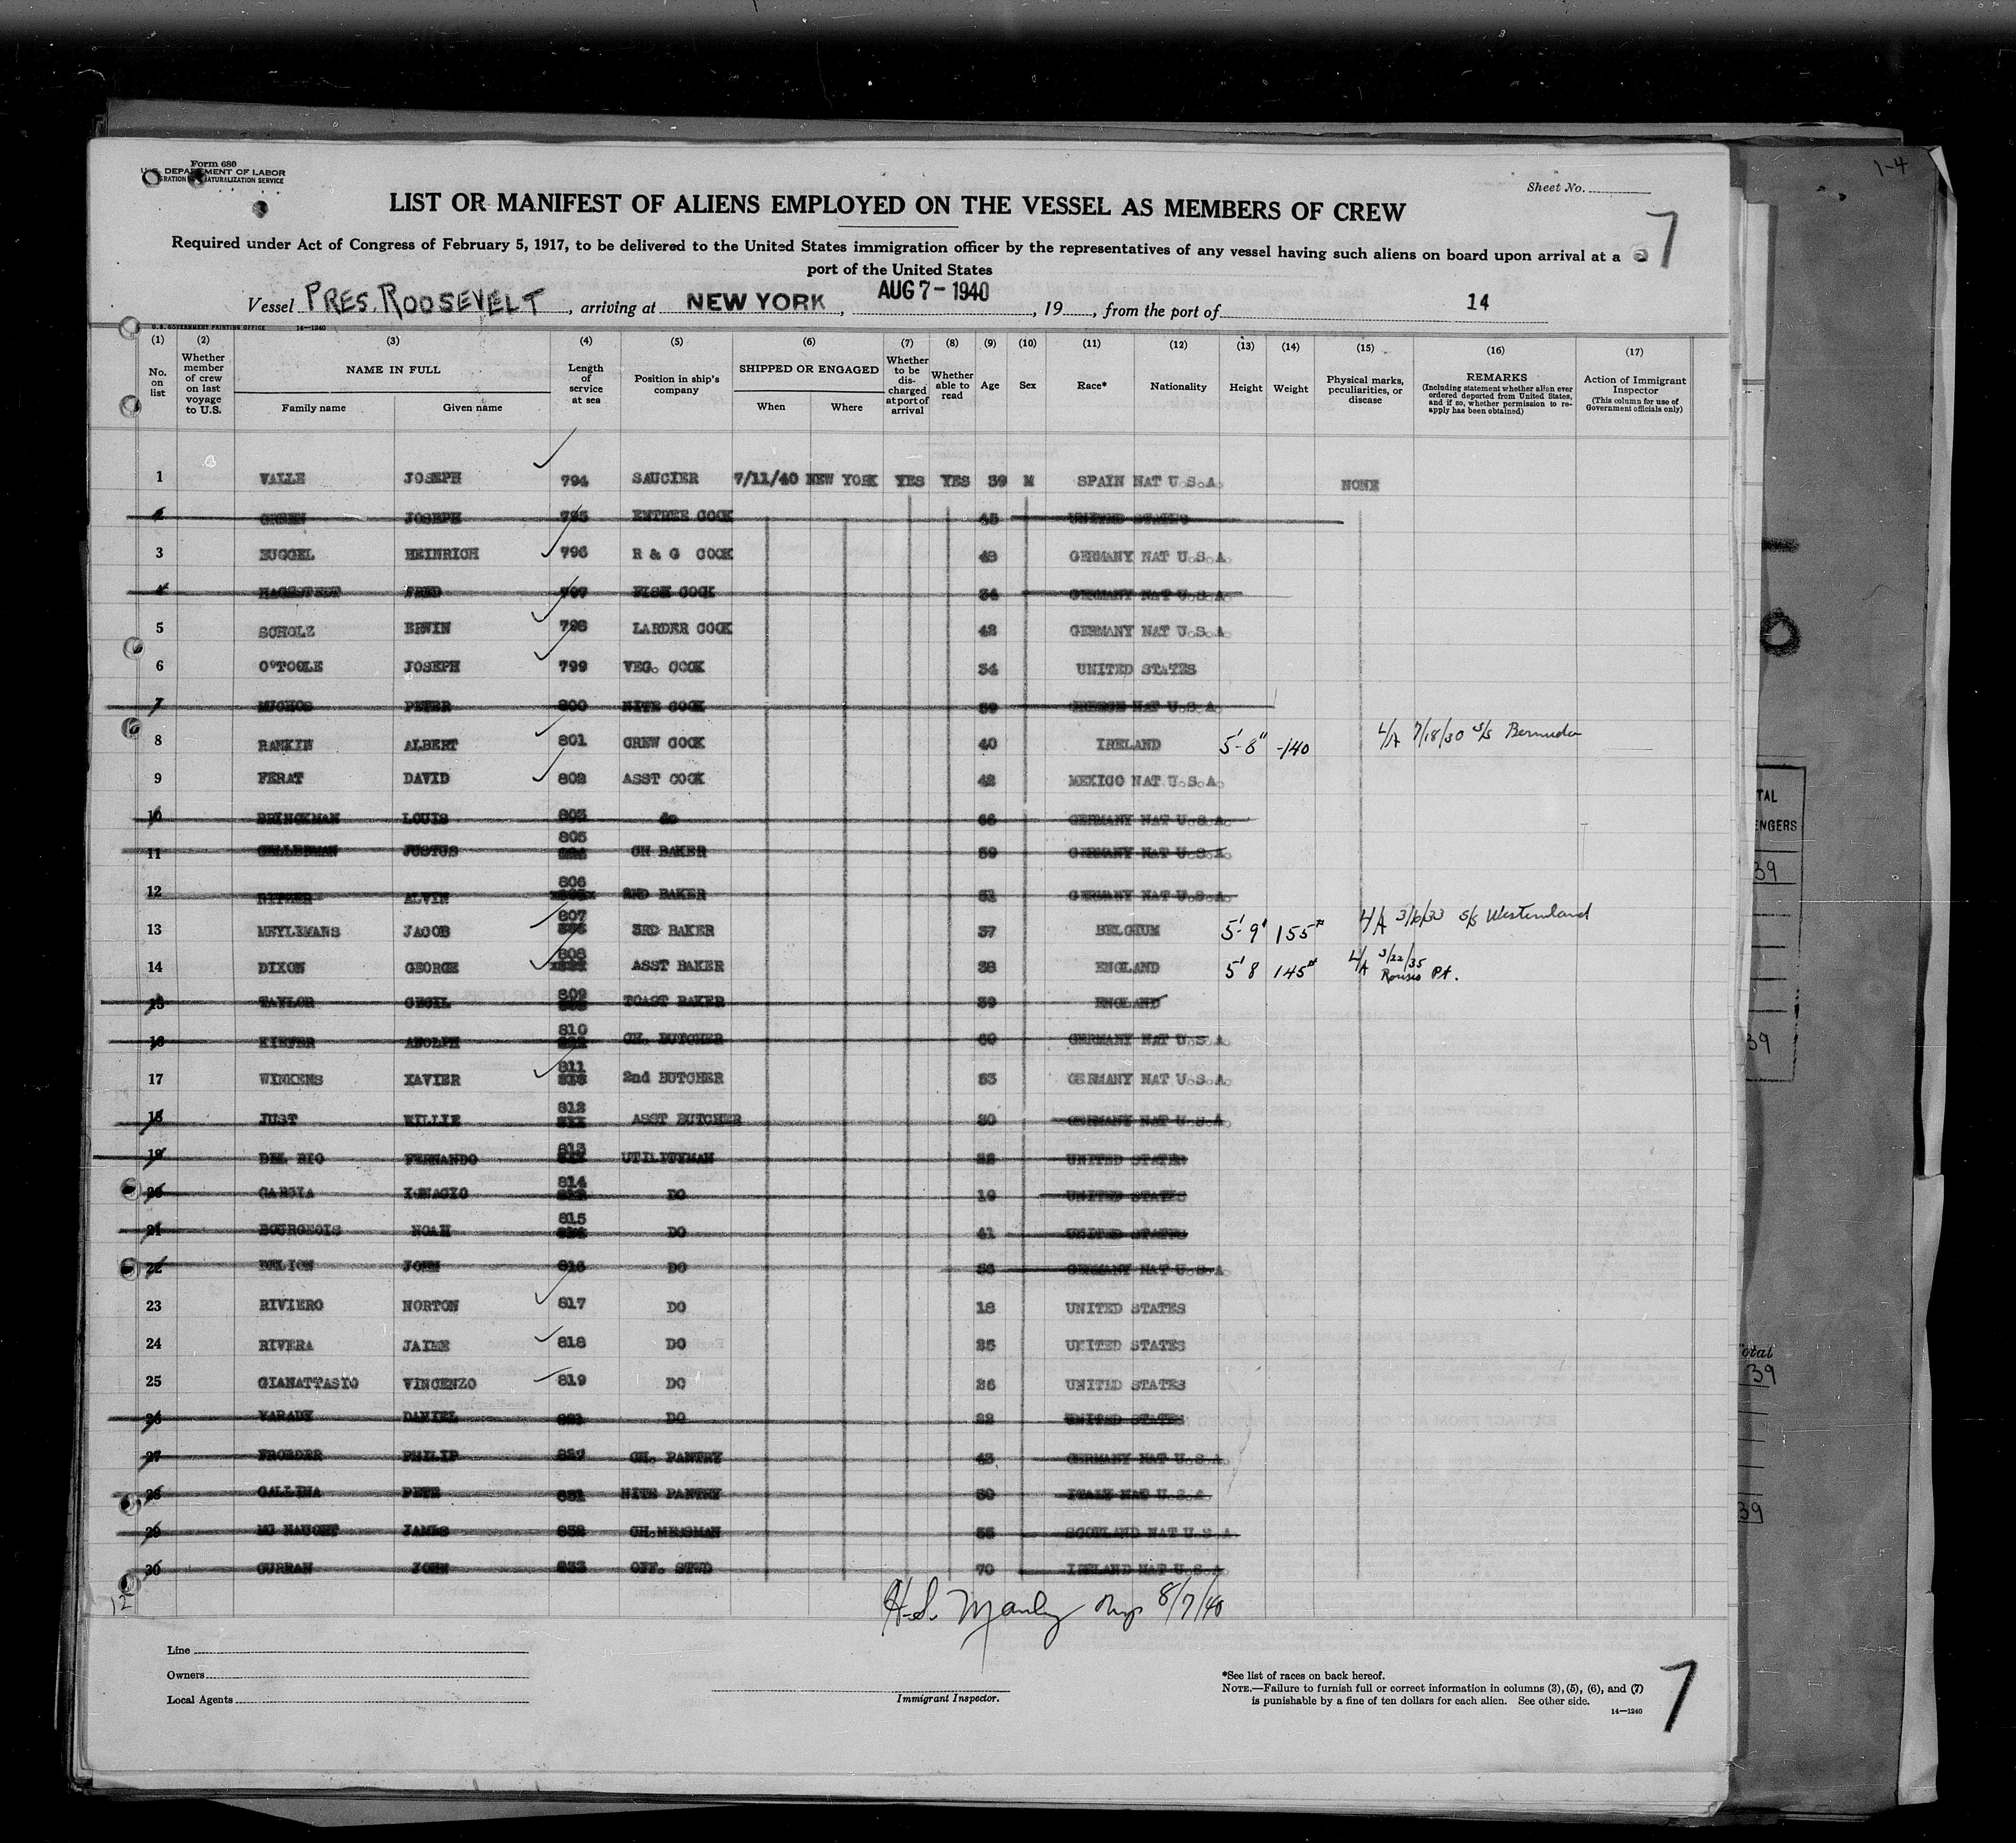 Form 680
U.S. DEPARTMENT OF LABOR
IMMIGRATION AND NATURALIZATION SERVICE
1-4
Sheet No.
LIST OR MANIFEST OF ALIENS EMPLOYED ON THE VESSEL AS MEMBERS OF CREW
7
Required under Act of Congress of February 5, 1917, to be delivered to the United States immigration officer by the representatives of any vessel having such aliens on board upon arrival at a
port of the United States
Vessel PRES. ROOSEVELT, arriving at NEW YORK, AUG 7 - 1940, 19, from the port of 14
U.S. GOVERNMENT PRINTING OFFICE 14—1240
(1) (2) (3) (4) (5) (6) (7) (8) (9) (10) (11) (12) (13) (14) (15) (16) (17)
No. on list
Whether member of crew on last voyage to U.S.
NAME IN FULL
Family name Given name
Length of service at sea
Position in ship's company
SHIPPED OR ENGAGED
When Where
Whether to be discharged at port of arrival
Whether able to read
Age
Sex
Race*
Nationality
Height
Weight
Physical marks, peculiarities, or disease
REMARKS
(Including statement whether alien ever ordered deported from United States, and if so, whether permission to reapply has been obtained)
Action of Immigrant Inspector
(This column for use of Government officials only)
1 VALLE JOSEPH 794 SAUCIER 7/11/40 NEW YORK YES YES 39 M SPAIN NAT U.S.A. NONE
2 GREEN JOSEPH 795 ENTREE COOK 45 UNITED STATES
3 EUGGEL HEINRICH 796 R & G COOK 43 GERMANY NAT U.S.A.
4 HAGESTEDT FRED 797 FISH COOK 34 GERMANY NAT U.S.A.
5 SCHOLZ ERWIN 798 LARDER COOK 42 GERMANY NAT U.S.A.
6 O'TOOLE JOSEPH 799 VEG. COOK 34 UNITED STATES
7 MUCHOS PETER 800 NITE COOK 39 GREECE NAT U.S.A.
8 RANKIN ALBERT 801 CREW COOK 40 IRELAND 5'-8" -140 L/A 7/18/30 S/S Bermuda
9 FERAT DAVID 802 ASST COOK 42 MEXICO NAT U.S.A.
10 BRINCKMAN LOUIS 803 do 66 GERMANY NAT U.S.A.
11 GELLERMAN JUSTUS 805 CH BAKER 59 GERMANY NAT U.S.A.
12 RITZER ALVIN 806 2ND BAKER 51 GERMANY NAT U.S.A.
13 MEYLEMANS JACOB 807 3RD BAKER 37 BELGIUM 5'-9" 155# L/A 3/6/33 S/S Westernland
14 DIXON GEORGE 808 ASST BAKER 38 ENGLAND 5'8 145# L/A 3/22/35 Rouses Pt.
15 TAYLOR CECIL 809 TOAST BAKER 39 ENGLAND
16 KIEFER ADOLPH 810 CH. BUTCHER 60 GERMANY NAT U.S.A.
17 WINKENS XAVIER 811 2nd BUTCHER 53 GERMANY NAT U.S.A.
18 JUST WILLIE 812 ASST BUTCHER 30 GERMANY NAT U.S.A
19 DEL RIO FERNANDO 813 UTILITYMAN 22 UNITED STATES
20 GARCIA IGNACIO 814 DO 19 UNITED STATES
21 BOURGEOIS NOAH 815 DO 41 UNITED STATES
22 DELION JOHN 816 DO 36 GERMANY NAT U.S.A
23 RIVIERO NORTON 817 DO 18 UNITED STATES
24 RIVERA JAIME 818 DO 25 UNITED STATES
25 GIANATTASIO VINCENZO 819 DO 26 UNITED STATES
26 VARADY DANIEL 821 DO 22 UNITED STATES
27 FROEDER PHILIP 827 CH. PANTRY 43 GERMANY NAT U.S.A.
28 GALLINA PETE 831 NITE PANTRY 30 ITALY NAT U.S.A.
29 MC NAUGHT JAMES 832 CH.MESSMAN 55 SCOTLAND NAT U.S.A
30 CURRAN JOHN 833 OFF. STWD 70 IRELAND NAT U.S.A
12
H.S. Manley 8/7/40
Line
Owners
Local Agents
Immigrant Inspector.
*See list of races on back hereof.
NOTE.—Failure to furnish full or correct information in columns (3), (5), (6), and (7)
is punishable by a fine of ten dollars for each alien. See other side.
14—1240
7
TAL
ENGERS
39
39
otal
39
39